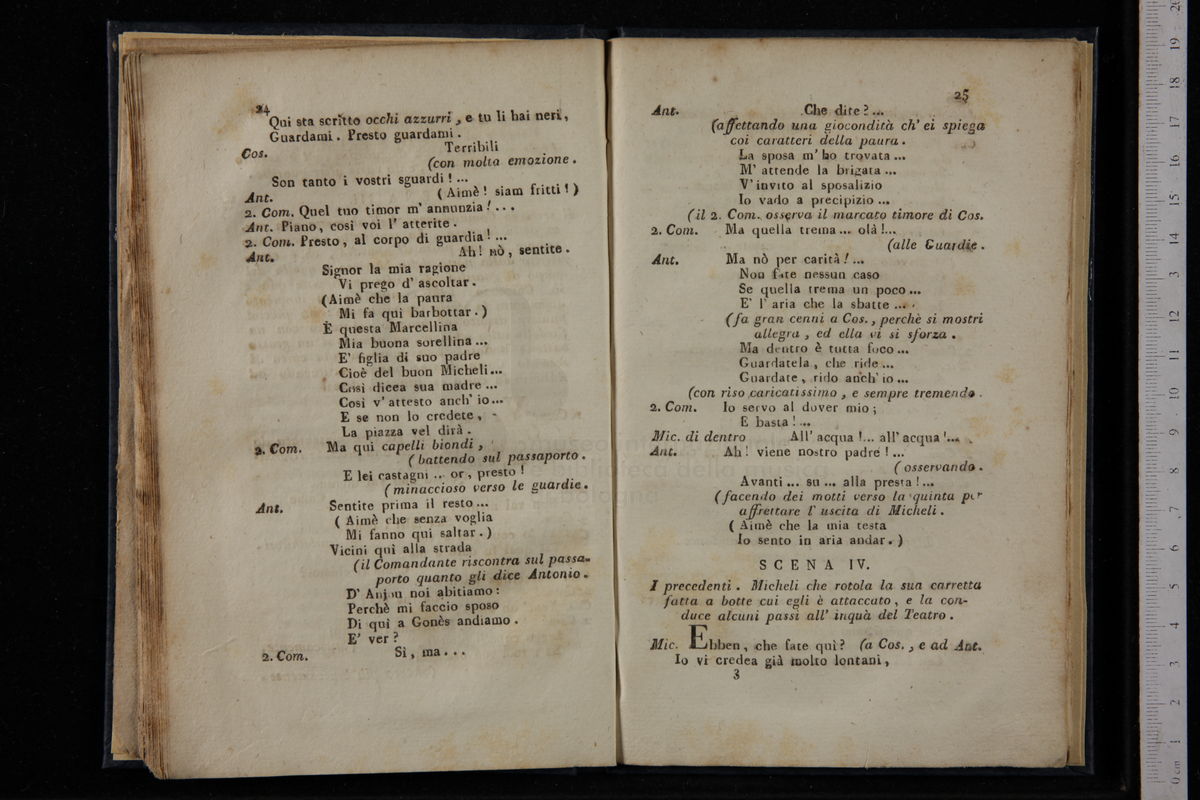 24
Qui sta scritto occhi azzurri, e tu li hai neri,
Guardami. Presto guardami.
Cos. Terribili
(con molta emozione.
Son tanto i vostri sguardi!...
Ant. (Aimè! siam fritti!)
2. Com. Quel tuo timor m' annunzia!...
Ant. Piano, così voi l' atterite.
2. Com. Presto, al corpo di guardia!...
Ant. Ah! nò, sentite.
Signor la mia ragione
Vi prego d' ascoltar.
(Aimè che la paura
Mi fa quì barbottar.)
È questa Marcellina
Mia buona sorellina...
E' figlia di suo padre
Cioè del buon Micheli...
Così dicea sua madre...
Così v' attesto anch' io...
E se non lo credete,
La piazza vel dirà.
2. Com. Ma qui capelli biondi,
(battendo sul passaporto.
E lei castagni... or, presto!
(minaccioso verso le guardie.
Ant. Sentite prima il resto...
(Aimè che senza voglia
Mi fanno qui saltar.)
Vicini quì alla strada
(il Comandante riscontra sul passa-
porto quanto gli dice Antonio.
D' Anjou noi abitiamo:
Perchè mi faccio sposo
Di quì a Gonès andiamo.
E' ver?
2. Com. Si, ma...
25
Ant. Che dite?...
(affettando una giocondità ch' ei spiega
coi caratteri della paura.
La sposa m' ho trovata...
M' attende la brigata...
V' invito al sposalizio
Io vado a precipizio...
(il 2. Com. osserva il marcato timore di Cos.
2. Com. Ma quella trema... olà!...
(alle Guardie.
Ant. Ma nò per carità!...
Non fate nessun caso
Se quella trema un poco...
E' l' aria che la sbatte...
(fa gran cenni a Cos., perchè si mostri
allegra, ed ella vi si sforza.
Ma dentro è tutta foco...
Guardatela, che ride...
Guardate, rido anch' io...
(con riso caricatissimo, e sempre tremendo.
2. Com. Io servo al dover mio;
E basta!...
Mic. di dentro All' acqua!... all' acqua!...
Ant. Ah! viene nostro padre!...
(osservando.
Avanti... su... alla presta!...
(facendo dei motti verso la quinta per
affrettare l' uscita di Micheli.
(Aimè che la mia testa
Io sento in aria andar.)
SCENA IV.
I precedenti. Micheli che rotola la sua carretta
fatta a botte cui egli è attaccato, e la con-
duce alcuni passi all' inquà del Teatro.
Mic. Ebben, che fate quì? (a Cos., e ad Ant.
Io vi credea già molto lontani,
3